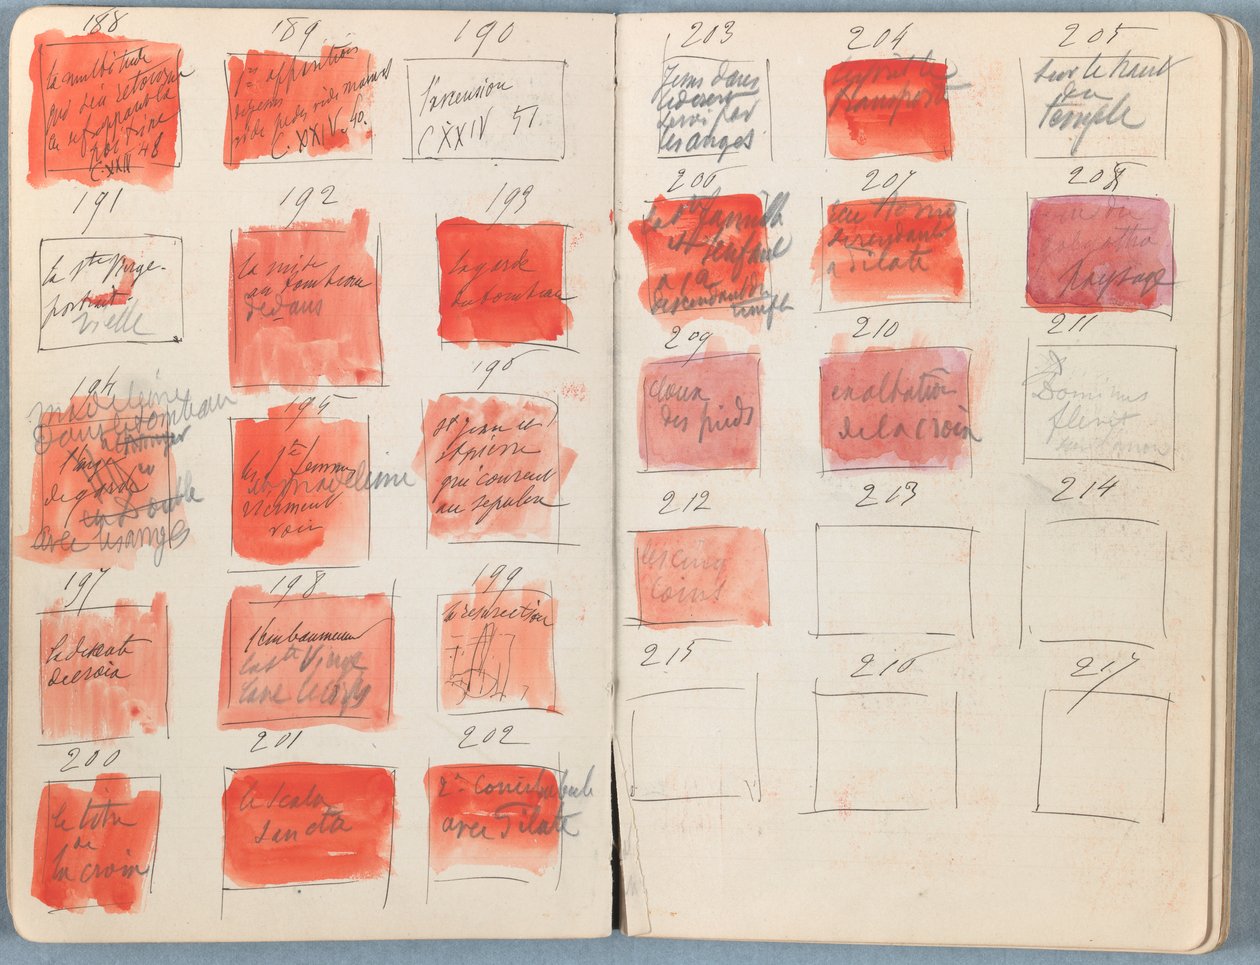 188
la multitude
qui s'en retourne
en se frappant la
poitrine
C. XXIII 48
189
1re apparition
C. XXIV. 40.
190
l'ascension
C XXIV 51.
191
la Ste Vierge.
portrait.
vielle
192
la mise
au tombeau
dedans
193
la garde
du tombeau
194
madeleine
dans le tombeau
l'ange
de garde
en double
avec les anges
195
les Stes femmes
et madeleine
viennent
voir
196
St Jean et
St pierre
qui courent
au sepulcre
197
la descente
de croix
198
l'embaumement
la Ste Vierge
lave le corps
199
la resurection
200
le titre
de
la croix
201
la scala
sancta
202
2e
avec Pilate
203
Jesus dans
le desert
servi par
les anges
204
transporte
205
sur le haut
du
temple
206
la Ste famille
et l'enfant
descendant du
temple
207
Ecce Homo
à Pilate
208
vue du
golgotha
Paysage
209
cloux
des pieds
210
exaltation
de la croix
211
Dominus
flevit
212
les cinq
coins
213
214
215
216
217